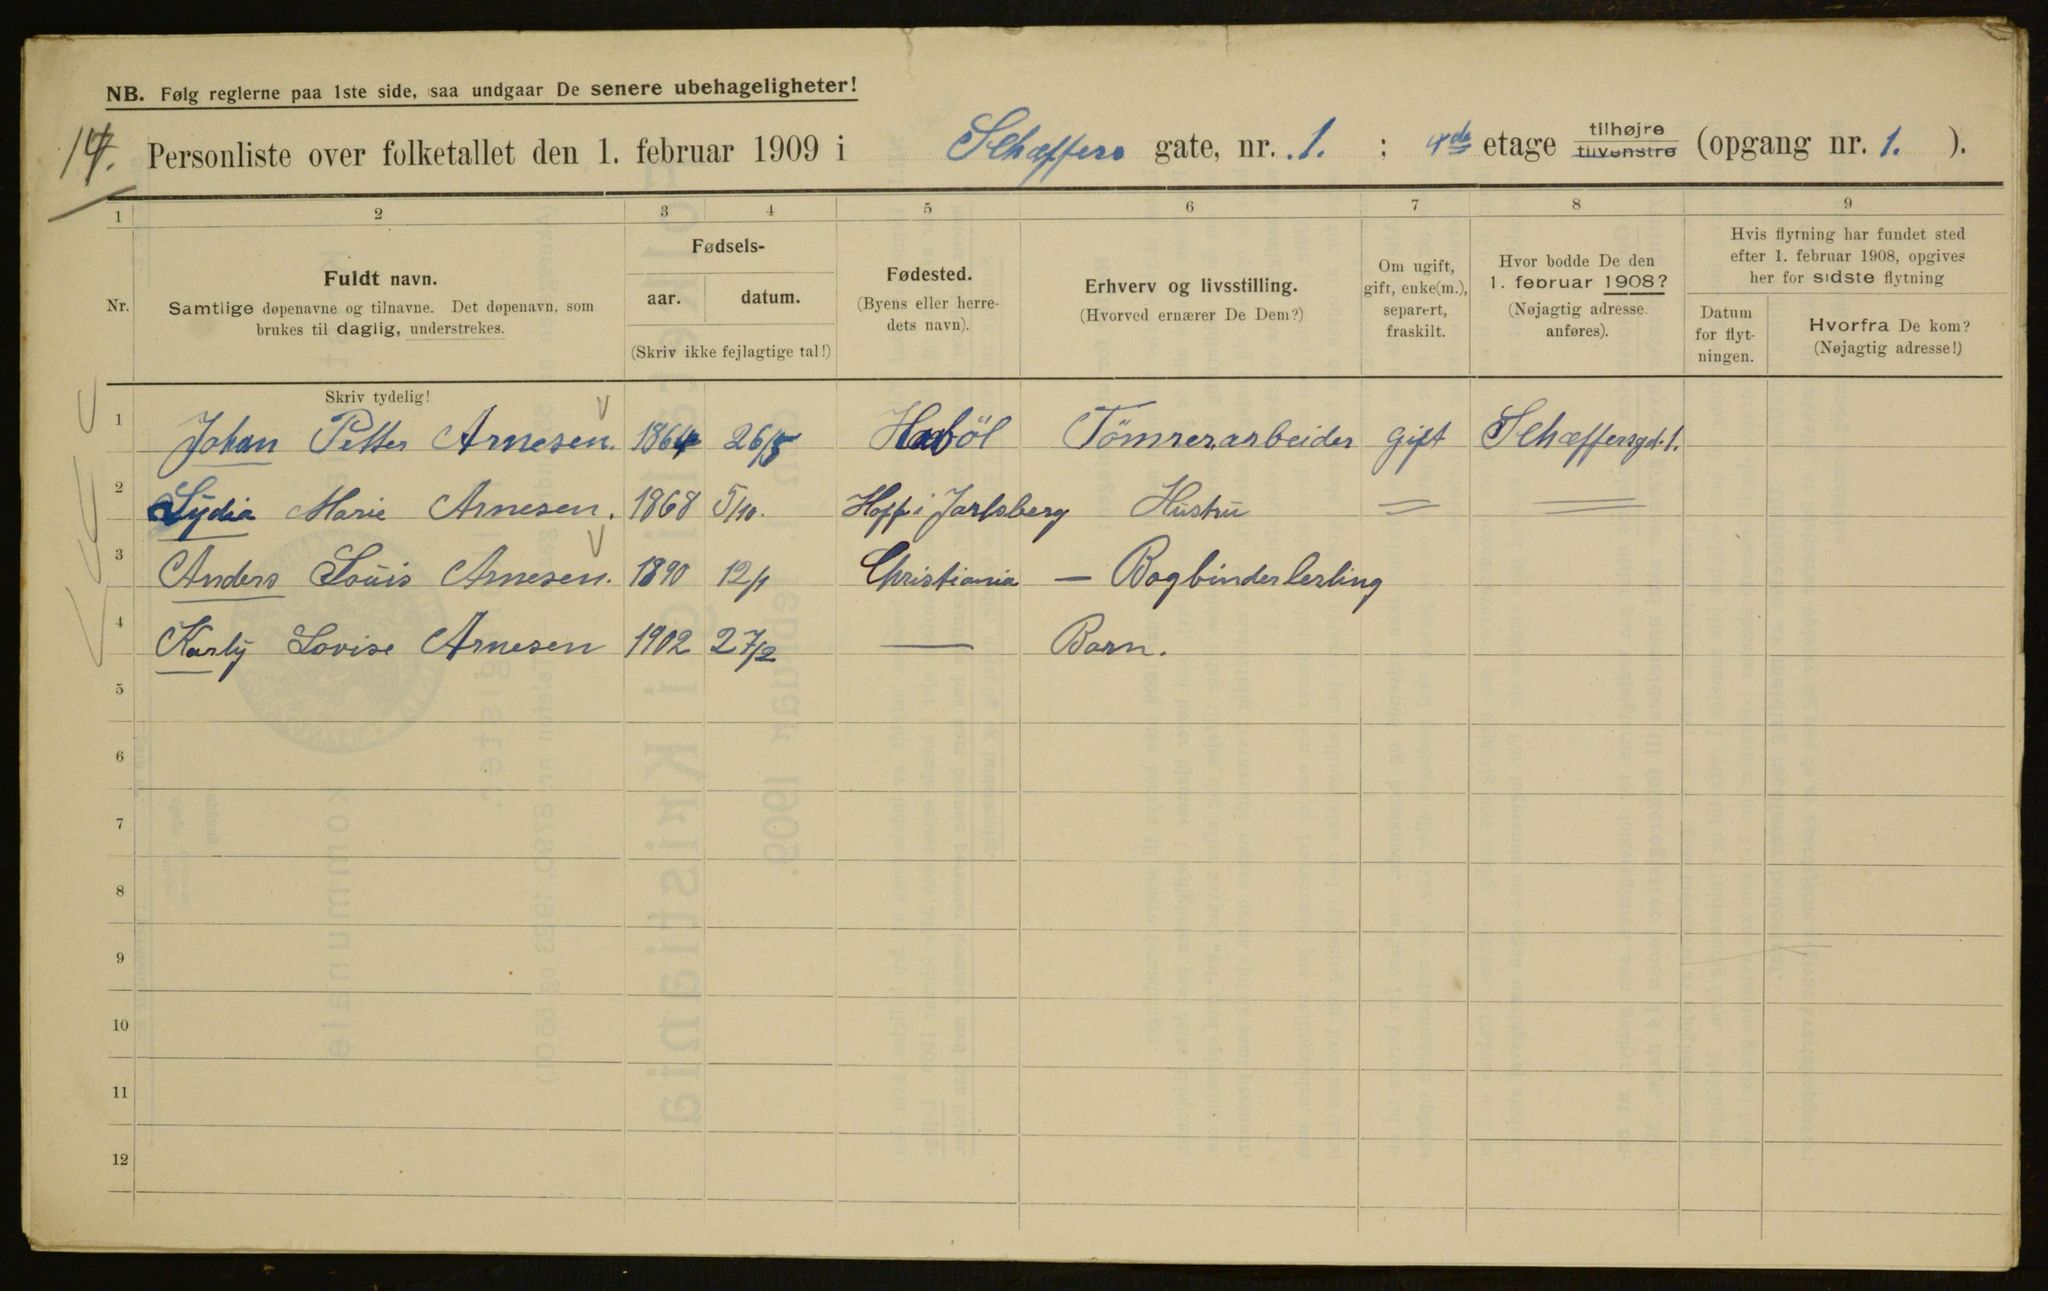 NB. Følg reglerne paa 1ste side, saa undgaar De senere ubehageligheter!
14. Personliste over folketallet den 1. februar 1909 i Schæffers gate, nr. 1. ; 4de etage tilhøjre tilvenstre (opgang nr. 1. ).
1 2 3 4 5 6 7 8 9
Nr.
Fuldt navn.
Samtlige døpenavne og tilnavne. Det døpenavn, som
brukes til daglig, understrekes.
Fødsels-
aar. datum.
(Skriv ikke fejlagtige tal!)
Fødested.
(Byens eller herre-
dets navn).
Erhverv og livsstilling.
(Hvorved ernærer De Dem?)
Om ugift,
gift, enke(m.),
separert,
fraskilt.
Hvor bodde De den
1. februar 1908?
(Nøjagtig adresse
anføres).
Hvis flytning har fundet sted
efter 1. februar 1908, opgives
her for sidste flytning
Datum
for flyt-
ningen.
Hvorfra De kom?
(Nøjagtig adresse!)
Skriv tydelig!
1 Johan Petter Arnesen. 1864 26/5 Haböl Tömrerarbeider gift Schæffersgt. 1.
2 Lydia Marie Arnesen. 1868 5/10. Hoff i Jarlsberg Hustru
3 Anders Louis Arnesen. 1890 12/1 Christiania — Bogbinderlerling
4 Karly Lovise Arnesen 1902 27/2 — Barn.
5
6
7
8
9
10
11
12